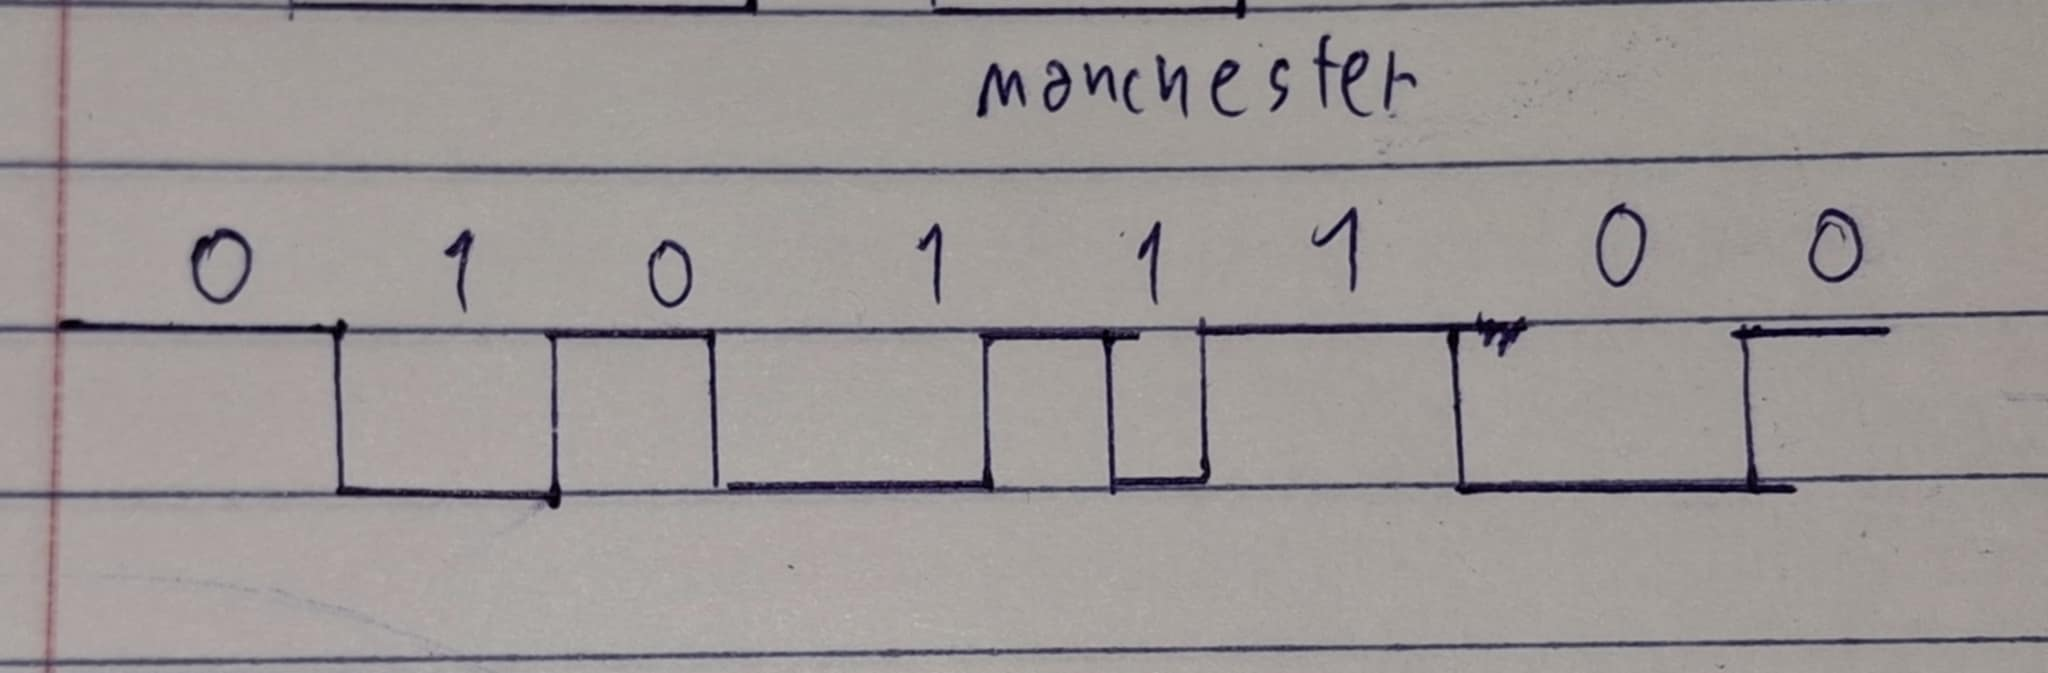 manchester
0 1 0 1 1 1 0 0